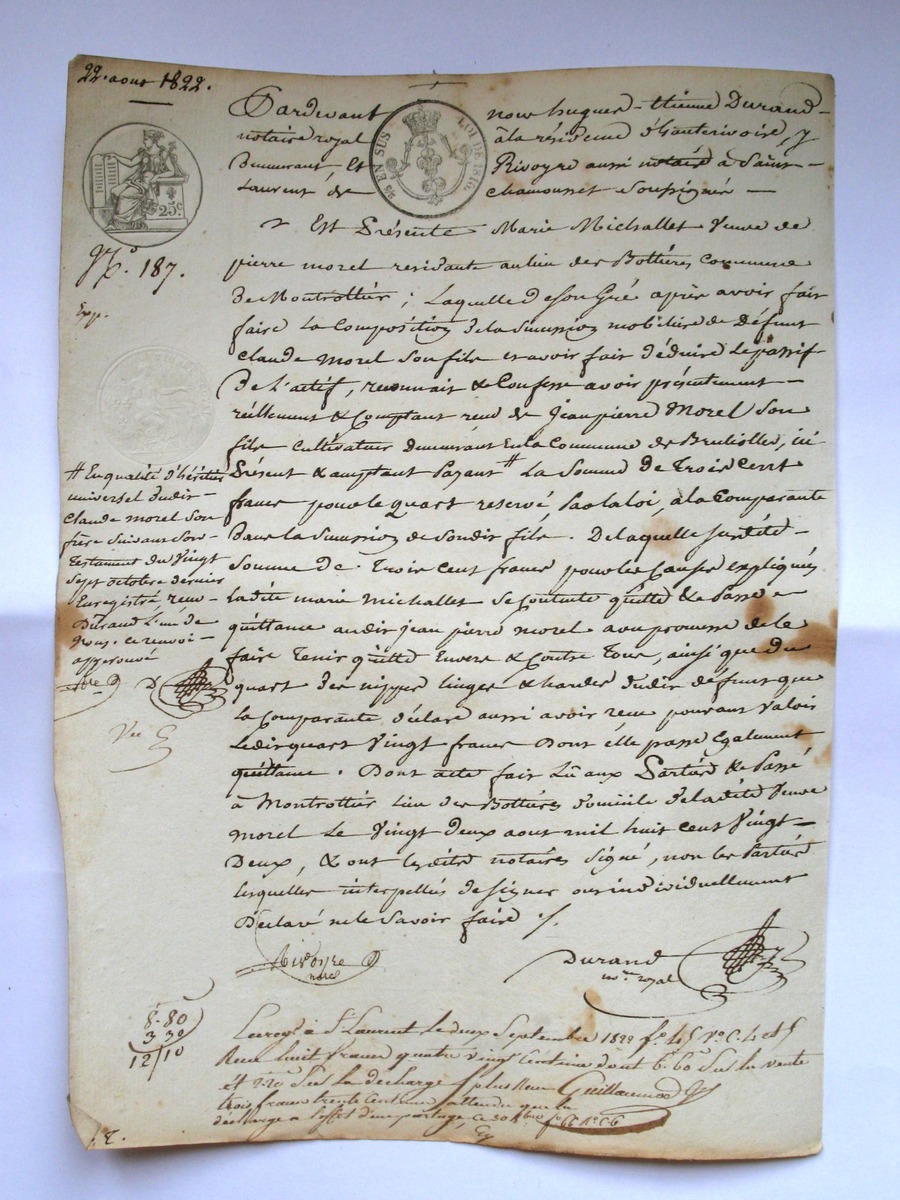 22. aout 1822.
Pardevant nous hugues-Etienne Durand
notaire royal à la résidence d'hauterivoire, y
Demeurant, Et Rivoyre aussi notaire à Saint-
Laurent de Chamousset soussignés
EN SUS LOI DE 1816
25c
Est Présente Marie Michallet Veuve de
N.º 187.
pierre morel residante au lieu des Bottières Commune
de Montrottier; Laquelle de son Gré après avoir fait
Exp.
faire La Composition de la Succession mobiliaire de Défunt
Claude Morel Son fils et avoir fait déduire Le passif
De l'actif, reconnait & Confesse avoir présentement
réellement & Comptant reçu de Jean pierre Morel Son
fils Cultivateur demeurant En la Commune de Brullioles, ici
Présent & acceptant Payant # La Somme de Trois Cent
francs pour le quart reservé, par la loi, à la Comparante
Dans la Succession de Son dit fils. De laquelle Susdite
Somme de Trois Cent francs pour les Causes expliquées
Ladite marie michallet Se Contente quitte & Passe
quittance audit jean pierre morel avec promesse de le
faire Tenir quitte Envers & Contre Tous, ainsi que du
quart des nippes linges & hardes dudit défunt que
La Comparante déclare aussi avoir reçu pouvant Valoir
Ledit quart Vingt francs Dont elle passe Egalement
quittance. Dont acte fait Lu aux Parties & Passé
à Montrottier Lieu des Bottières domicile de ladite Veuve
morel Le Vingt Deux aout mil huit cent Vingt-
Deux, & ont lesdits notaires Signé, non les Parties
Lesquelles interpellées de Signer ont individuellement
Déclaré ne le Savoir faire ./.
# En qualité d'héritier
universel dudit
Claude morel Son
frère Suivant Son
Testament du Vingt
Sept octobre dernier
Enregistré reçu
Durand L'un de
Nous. ce renvoi
approuvé
Rivoyre
nore
Durand
no.re royal
8-80
3 30
12/10
Enreg.é à St Laurent Le deux Septembre 1822 f.º 45 V.º C. 4 et 5
Reçu huit francs quatre vingt Centimes dont 6. 60 Sur la vente
et 2.20 Sur la decharge & plus Reçu Guillaumod
trois francs trente Centimes attendu que la
decharge a l'effet d'un partage, ce 30